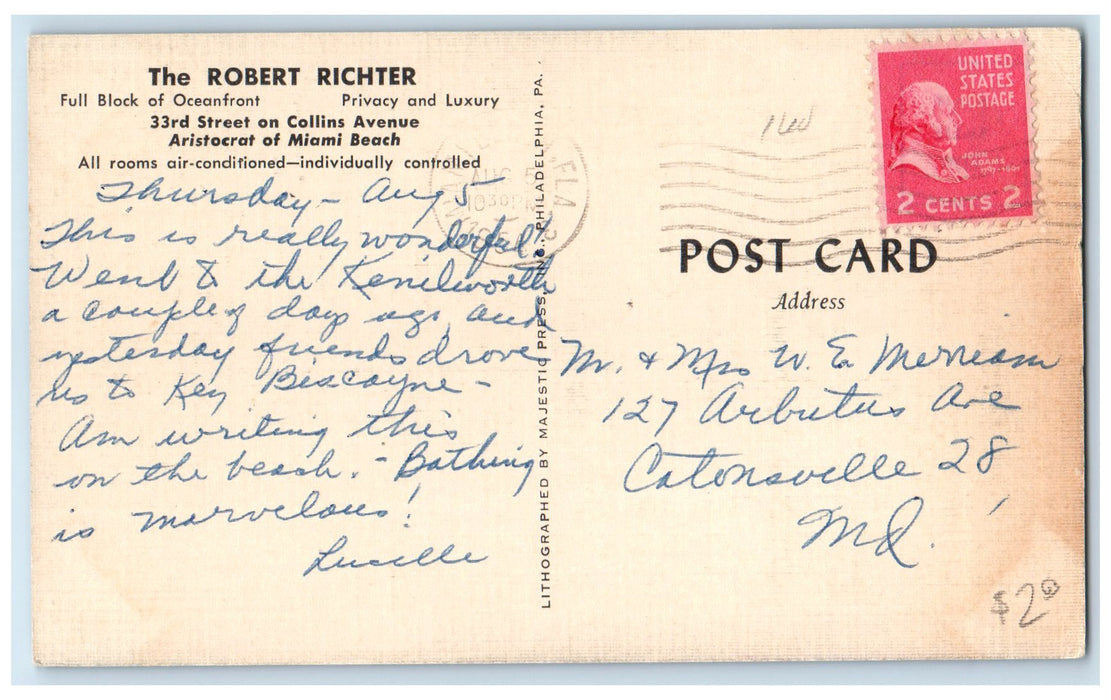 The ROBERT RICHTER
Full Block of Oceanfront Privacy and Luxury
33rd Street on Collins Avenue
Aristocrat of Miami Beach
All rooms air-conditioned—individually controlled
Thursday - Aug 5
This is really wonderful!
Went to the Kenilworth
a couple of days ago, and
yesterday friends drove
us to Key Biscayne -
Am writing this
on the beach. - Bathing
is marvelous!
Lucille
LITHOGRAPHED BY MAJESTIC PRESS, INC., PHILADELPHIA, PA.
AUG
1030 PM
FLA
UNITED
STATES
POSTAGE
JOHN
ADAMS
1797-1801
2 CENTS 2
POST CARD
Address
Mr. & Mrs W. E. Merriam
127 Arbutus Ave
Catonsville 28
Md.
$2.00